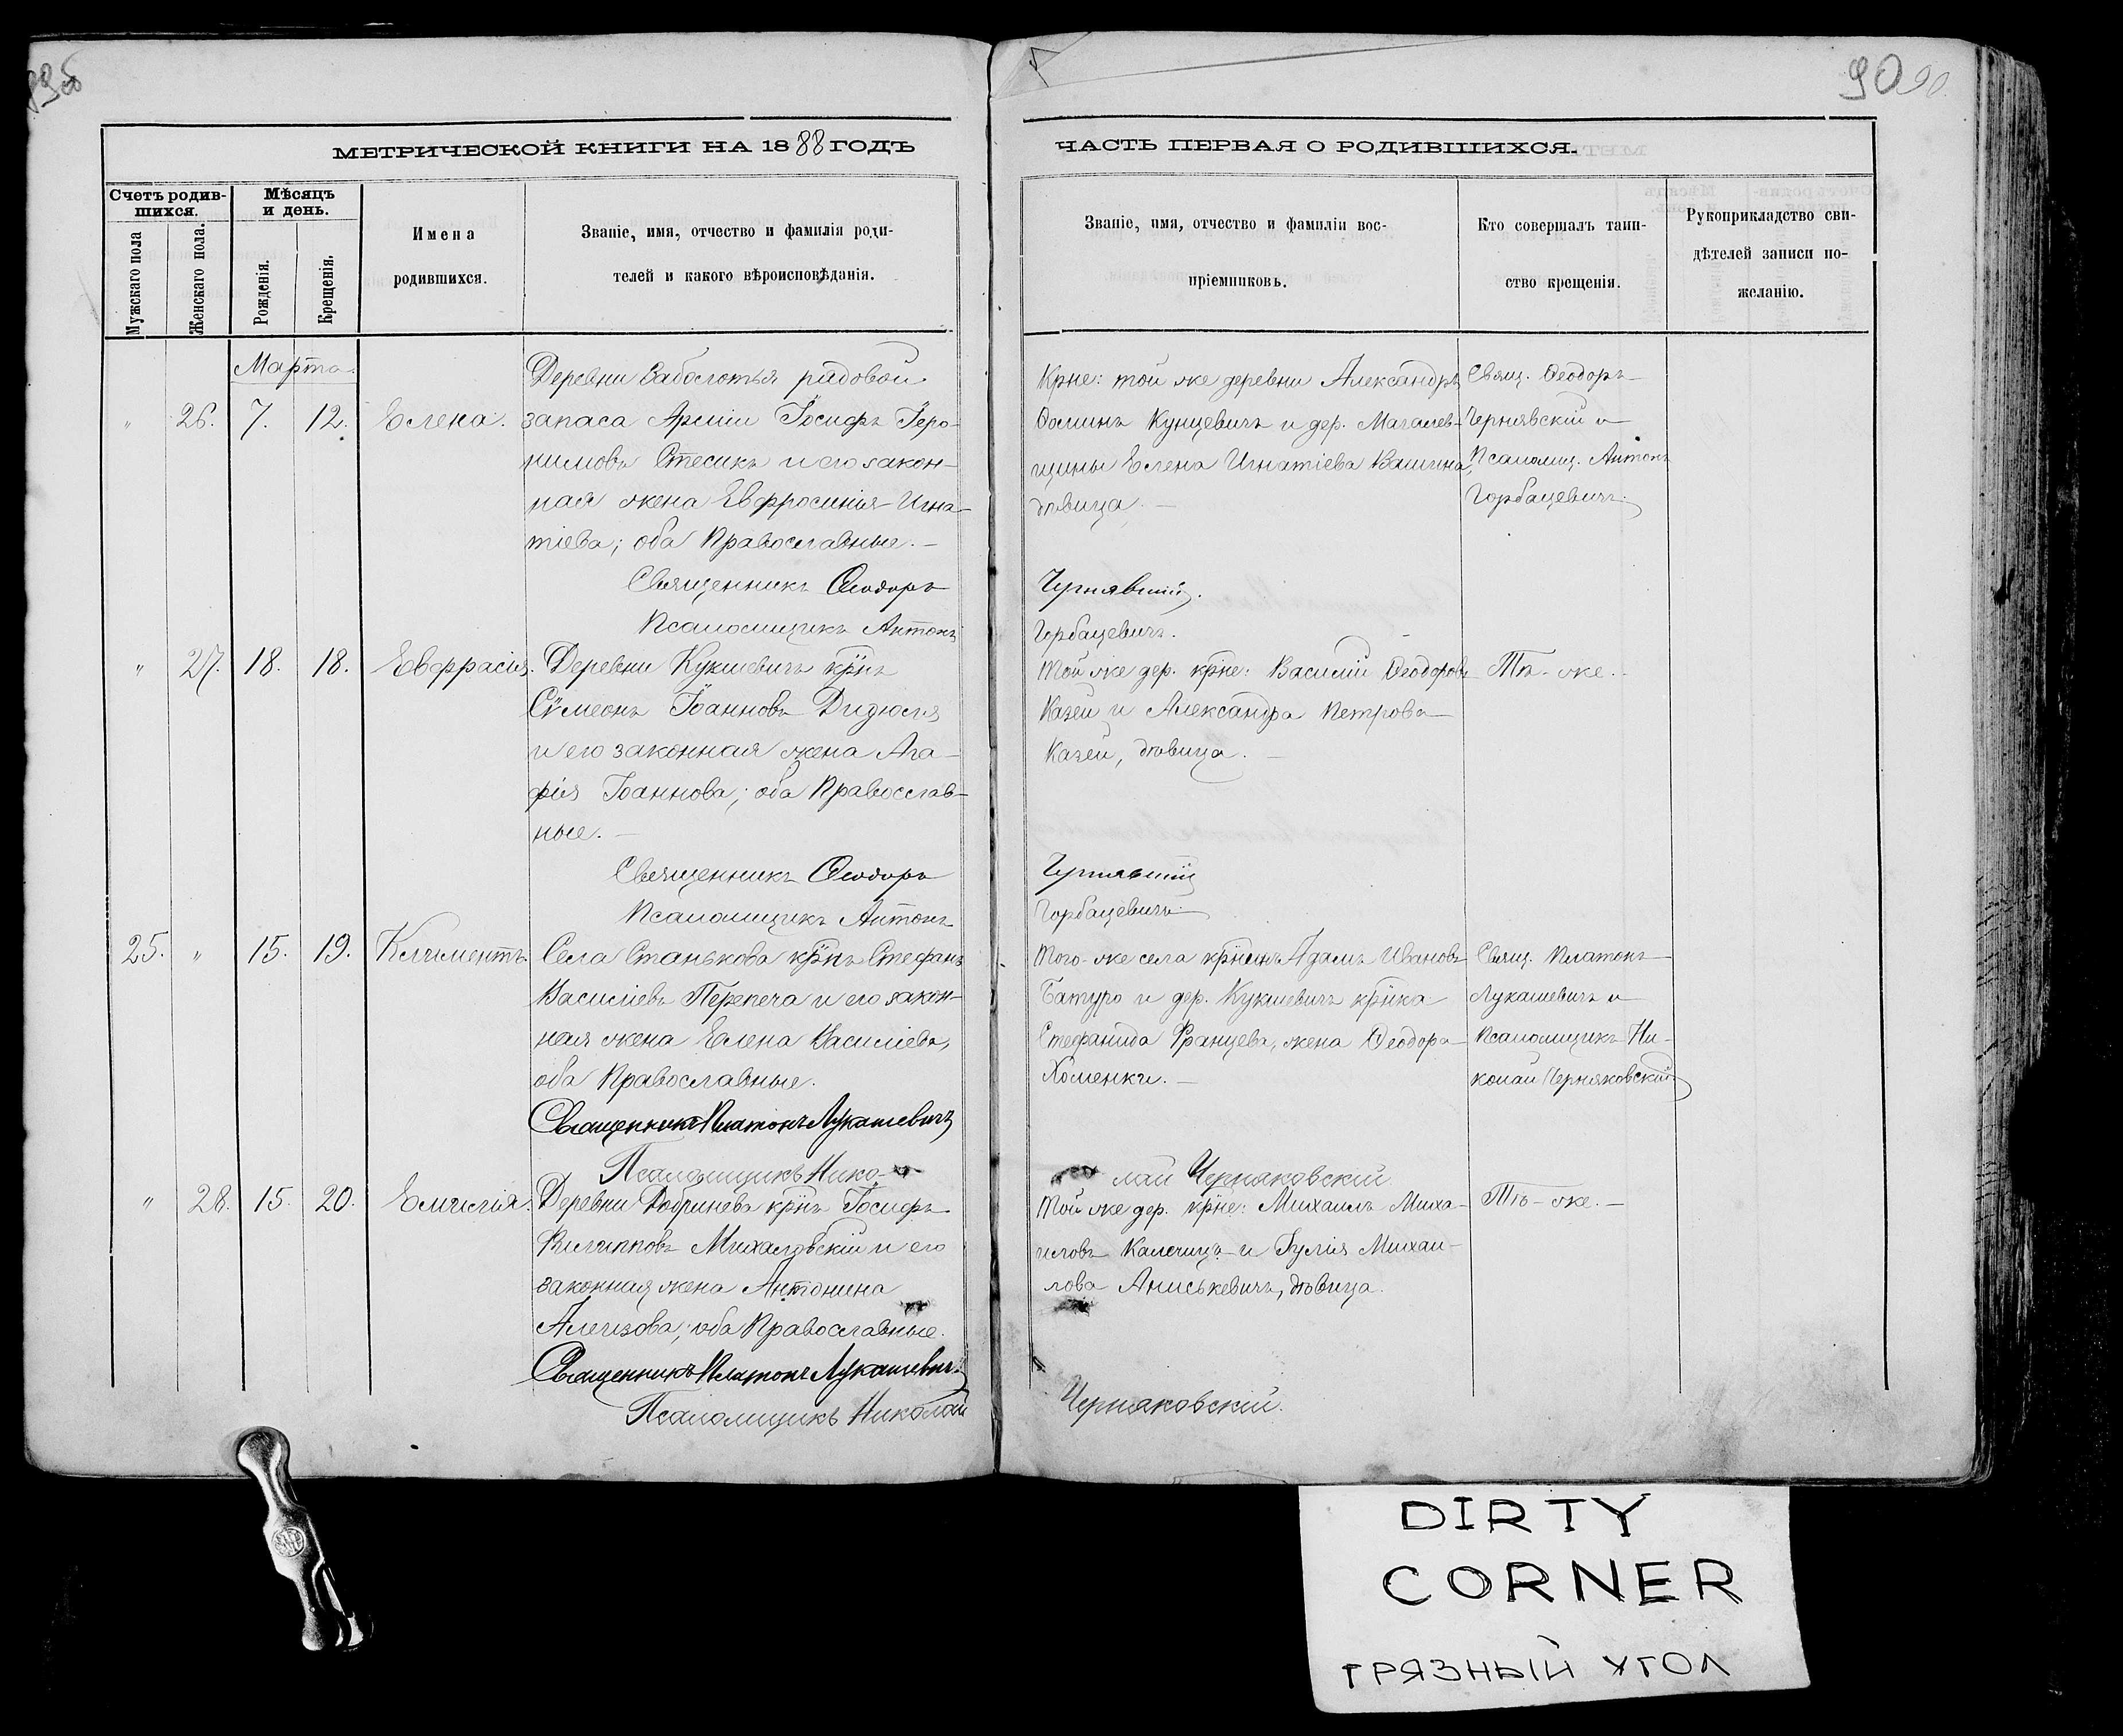 90 90.
МЕТРИЧЕСКОЙ КНИГИ НА 1888 ГОДЪ
ЧАСТЬ ПЕРВАЯ О РОДИВШИХСЯ.
Счетъ родив-
шихся.
Мужскаго пола
Женскаго пола.
Мѣсяцъ
и день.
Рожденія.
Крещенія.
Имена
родившихся.
Званіе, имя, отчество и фамилія роди-
телей и какого вѣроисповѣданія.
Званіе, имя, отчество и фамиліи вос-
пріемниковъ.
Кто совершалъ таин-
ство крещенія.
Рукоприкладство сви-
дѣтелей записи по-
желанію.
Марта.
" 26. 7. 12. Елена.
Деревни Заболотья рядовой
запаса Арміи Іосифъ Іеро-
нимовъ Стесикъ и его закон-
ная жена Евфросинія Игна-
тіева; оба Православные. —
Священникъ Ѳеодоръ
Псаломщикъ Антонъ
Крне: той же деревни Александръ
Ѳоминъ Кунцевичъ и дер.
щины Елена Игнатіева
дѣвица. —
Чернявскій.
Горбацевичъ.
Свящ. Ѳеодоръ
Чернявскій и
Псаломщ. Антонъ
Горбацевичъ.
" 27. 18. 18. Евфрасія.
Деревни Кукшевичъ крнъ
Сѵмеонъ Іоанновъ Дидюля
и его законная жена Ага-
фія Іоаннова; оба Православ-
ные. —
Священникъ Ѳеодоръ
Псаломщикъ Антонъ
Той же дер. крне: Василій Ѳеодоровъ
Казей и Александра Петрова
Казей, дѣвица. —
Чернявскій
Горбацевичъ
Тѣ-же. —
25. " 15. 19. Климентъ.
Села Станькова крнъ Стефанъ
Василіевъ Перепеча и его закон-
ная жена Елена Василіева,
оба Православные.
Священникъ Платонъ Лукашевичъ
Псаломщикъ Нико-
Того-же села крнинъ Адамъ Ивановъ
Батуро и дер. Кукшевичъ крнка
Стефанида Францева, жена Ѳеодора
Хоменки. —
лай Черняковскій.
Свящ. Платонъ
Лукашевичъ и
Псаломщикъ Ни-
колай Черняковскій
" 28. 15. 20. Емилія.
Деревни Добринева крнъ Іосифъ
Филипповъ Михаловскій и его
законная жена Антонина
Алеизова; оба Православные.
Священникъ Платонъ Лукашевичъ
Псаломщикъ Николай
Той же дер. крне: Михаилъ Миха-
иловъ Калечицъ и Іулія Михаи-
лова Аниськевичъ, дѣвица.
Черняковскій.
Тѣ-же. —
DIRTY
CORNER
ГРЯЗНЫЙ УГОЛ